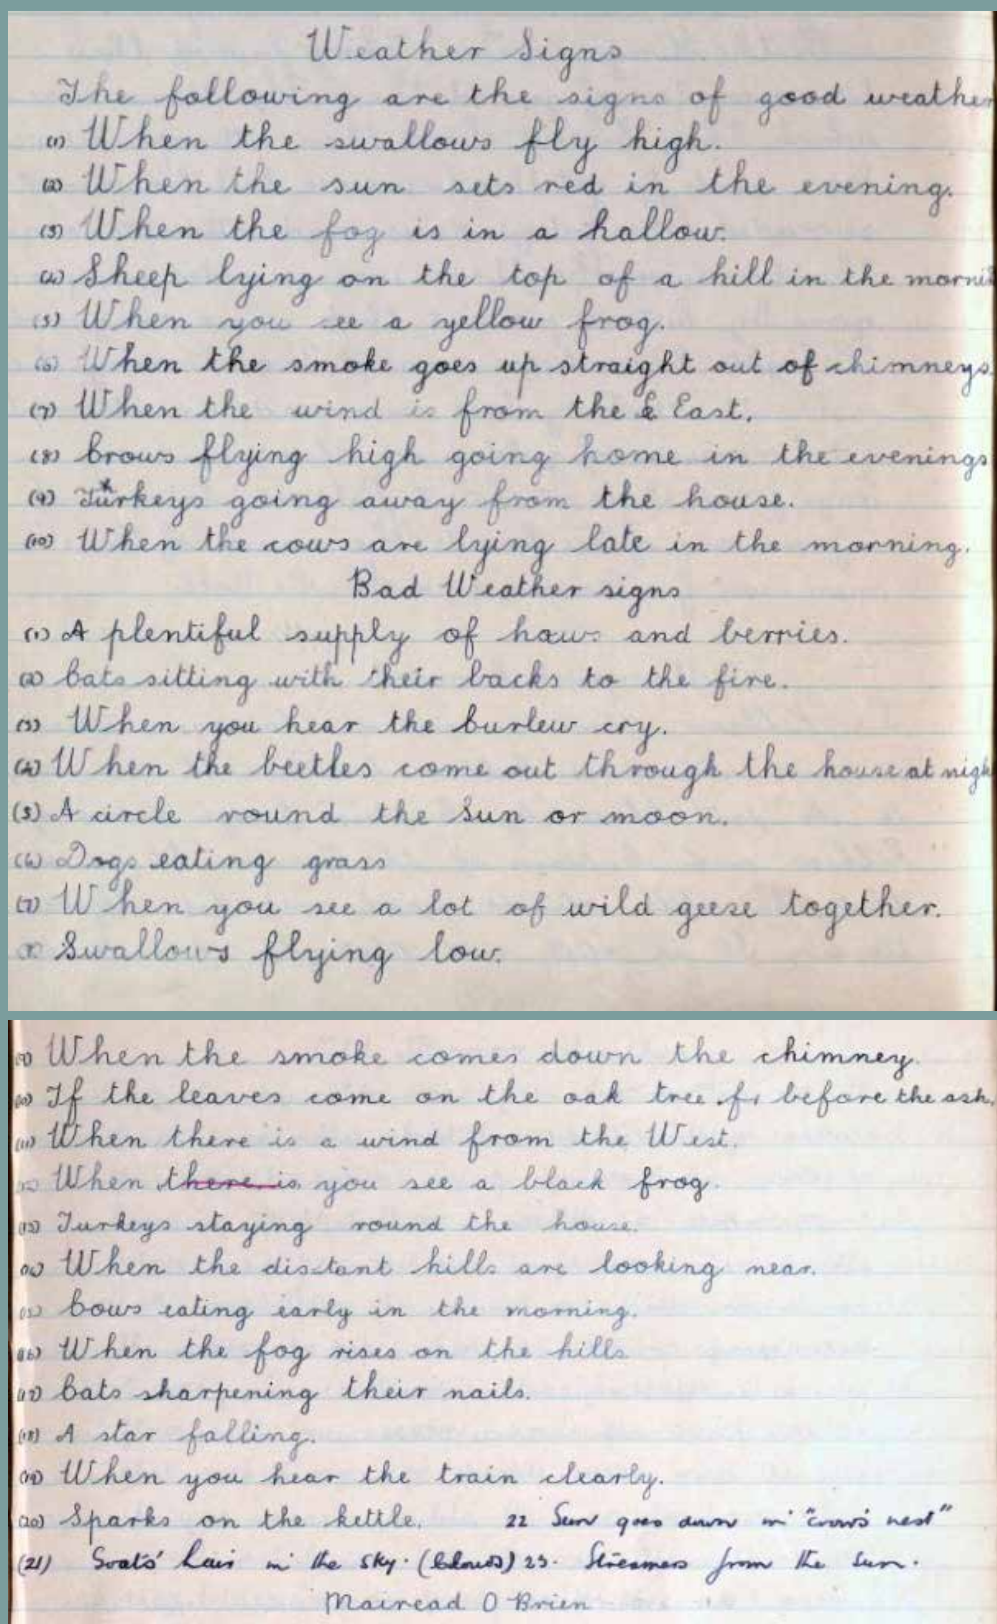 Weather Signs
The following are the signs of good weather
(1) When the swallows fly high.
(2) When the sun sets red in the evening.
(3) When the fog is in a hallow.
(4) Sheep lying on the top of a hill in the mornin
(5) When you see a yellow frog.
(6) When the smoke goes up straight out of chimneys.
(7) When the wind is from the E East.
(8) Crows flying high going home in the evenings
(9) Turkeys going away from the house.
(10) When the cows are lying late in the morning.
Bad Weather signs
(1) A plentiful supply of haws and berries.
(2) Cats sitting with their backs to the fire.
(3) When you hear the Curlew cry.
(4) When the beetles come out through the house at nigh
(5) A circle round the Sun or moon.
(6) Dogs eating grass
(7) When you see a lot of wild geese together.
(8) Swallows flying low.
(9) When the smoke comes down the chimney.
(10) If the leaves come on the oak tree before the ash.
(11) When there is a wind from the West.
(12) When there is you see a black frog.
(13) Turkeys staying round the house.
(14) When the distant hills are looking near.
(15) Cows eating early in the morning.
(16) When the fog rises on the hills
(17) Cats sharpening their nails.
(18) A star falling.
(19) When you hear the train clearly.
(20) Sparks on the kettle. 22 Sun goes down in "crow's nest"
(21) Goats' hair in the sky. (Clouds) 23. Streamers from the Sun.
Mairead O Brien